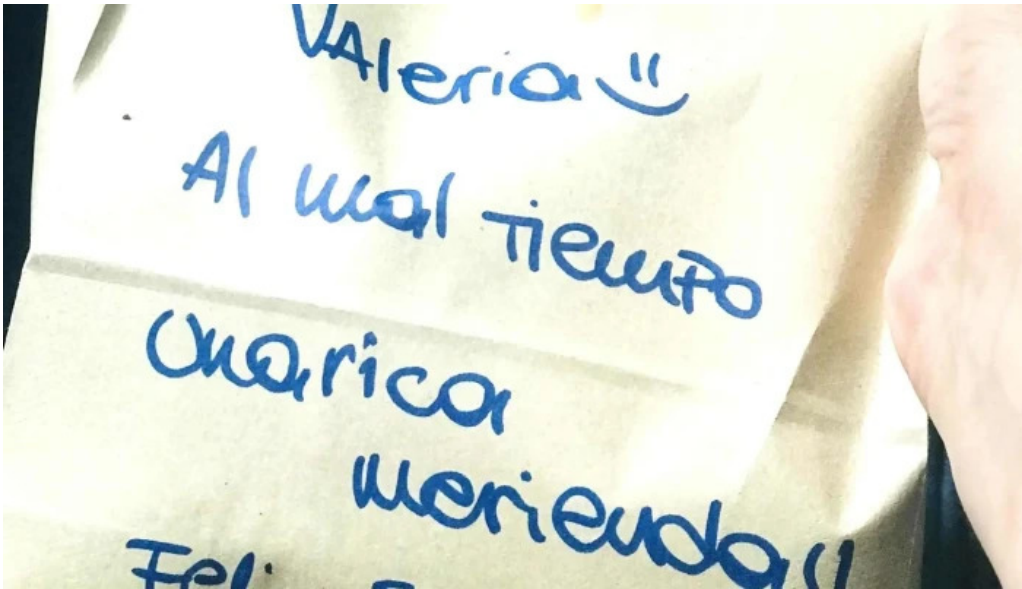 Valeria
Al mal tiempo
una rica
merienda!!